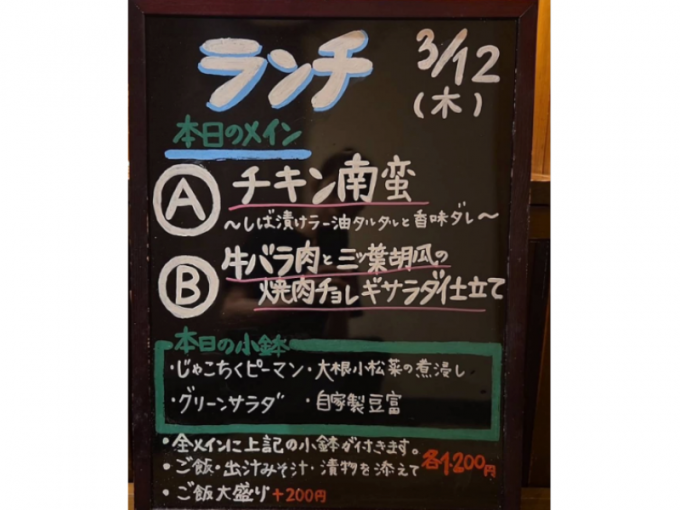 ランチ 3/12
(木)
本日のメイン
A チキン南蛮
〜しば漬けラー油タルタルと香味ダレ〜
B 牛バラ肉と三ッ葉胡瓜の
焼肉チョレギサラダ仕立て
本日の小鉢
・じゃこちくピーマン・大根小松菜の煮浸し
・グリーンサラダ ・自家製豆富
・全メインに上記の小鉢が付きます。
・ご飯・出汁みそ汁・漬物を添えて 各1,200円
・ご飯大盛り+200円